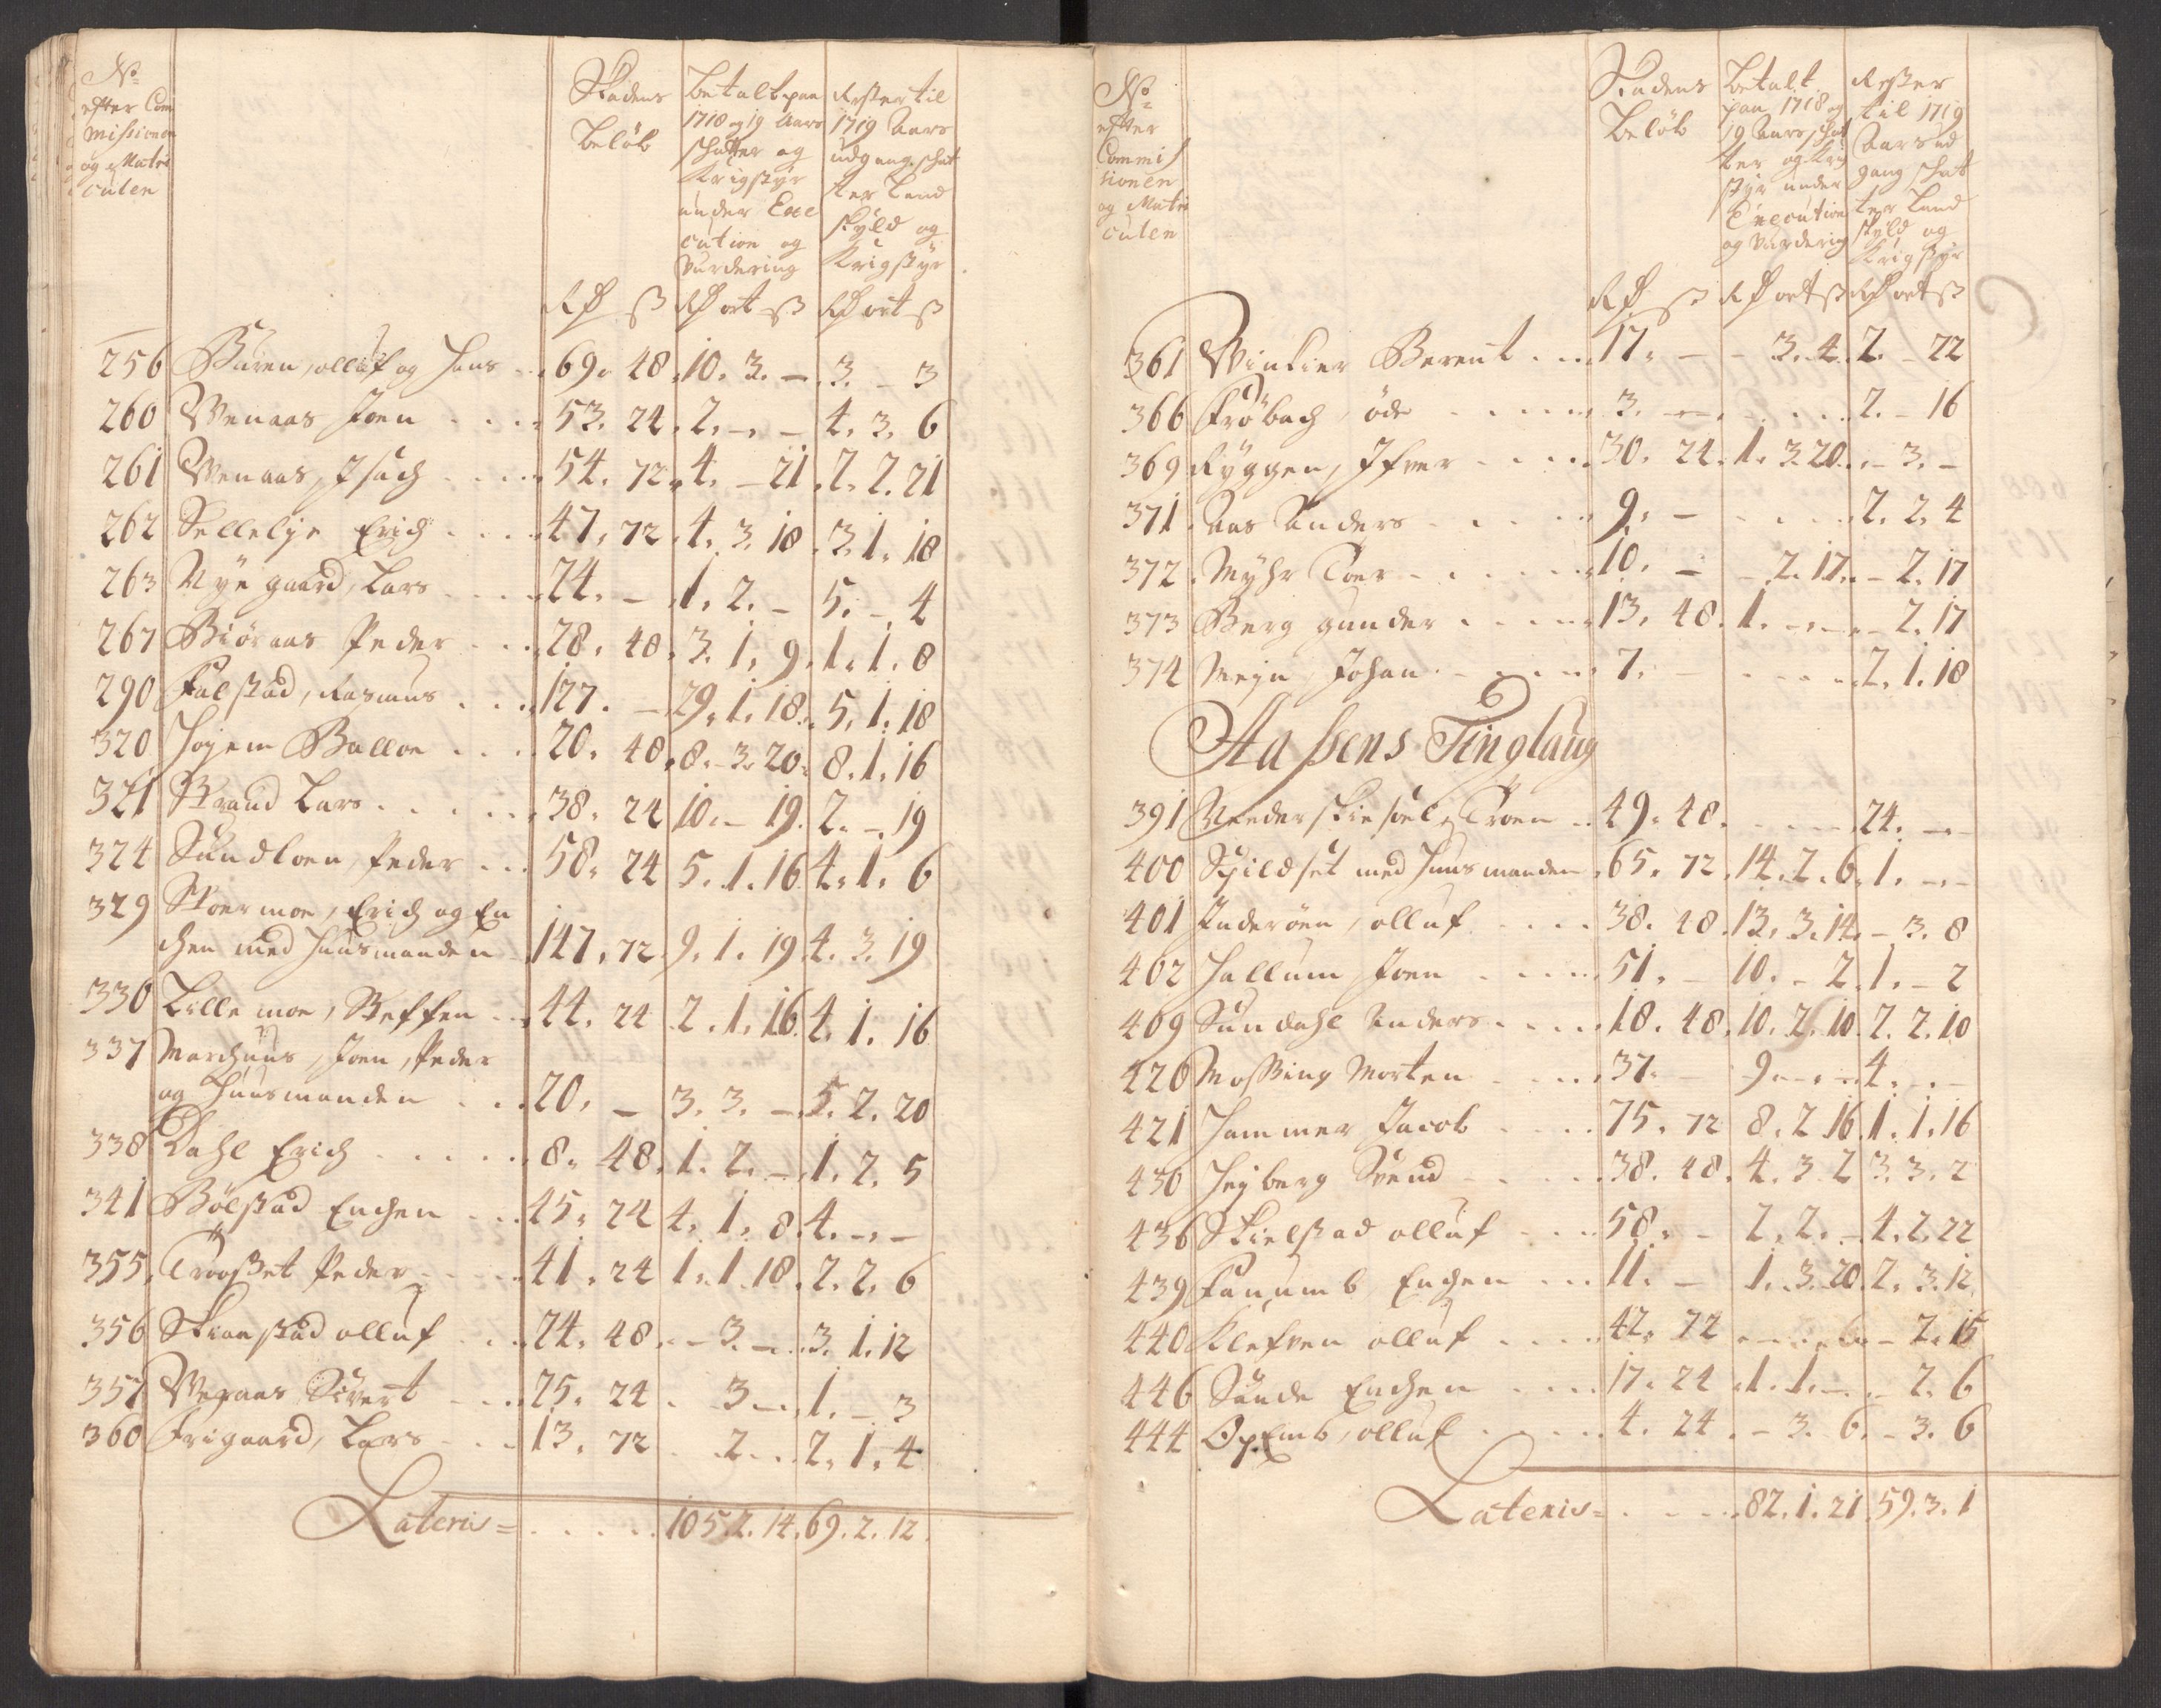 No
efter Com
mission en
og Matri
culen
Skadens
beløb
betalt paa
1718 og 19 Aars
schatter og
Krigstyr
under Exe
cution og
Vurdering
Rester til
1719 Aars
udgang, schat
ter Land
skyld og
Krigstyr
Rd ß Rd ort ß Rd ort ß
256 Buren, olluf og Hans 69. 48. 10. 3. - 3. - 3
260 Venaas Joen 53. 24. 2. - - 4. 3. 6
261 Venaas, Isach 54. 72. 4. - 21. 2. 2. 21
262 Sellelje Erich 47. 72. 4. 3. 18. 3. 1. 18
263 Nye gaard, Lars 24. - 1. 2. - 5. - 4
267 Biøraas Peder 28. 48. 3. 1. 9. 1. 1. 8
290 Falstad, Rasmus 127. - 29. 1. 18. 5. 1. 18
320 Hojem Balloe 20. 48. 8. 3. 20. 8. 1. 16
321 Strand Lars 38. 24 10. - 19. 2. - 19
324 Sundloen, Peder 58. 24 5. 1. 16. 4. 1. 6
329 Stoermoe, Erich og En
chen med Huusmanden 147. 72. 9. 1. 19. 4. 3. 19
330 Lille moe, Steffen 44. 24 2. 1. 16. 4. 1. 16
337 Marchuus, Joen, Peder
og Huusmanden 20. - 3. 3. - 5. 2. 20
338 Dahl Erich 8. 48. 1. 2. - 1. 2. 5
341 Bølstad Enchen 45. 24 4. 1. 8. 4. - -
355. Trøoset Peder 41. 24 1. 1. 18. 2. 2. 6
356 Skienstad olluf 24. 48. - 3. - 3. 1. 12
357 Sivert 25. 24. 3 - 1. - 3
360 Frigaard, Lars 13. 72 2. 2. 1. 4
Lateris = 105. 2. 14. 69. 2. 12.
No
efter
Commis
sionen
og Matri
culen
Skadens
beløb
betalt
paa 1718 og
19 Aars schat
ter og Krig
styr under
Execution
og Vurdering
Rester
til 1719
Aars ud
gang schat
ter Land
skyld og
Krigstyr
Rd. ß Rd ort ß Rd ort ß
361 Vintier Berent 17. - - 3. 4. 2. - 22
366 Frøbach, øde 3. - 2. - 16
369 Ryggen, Ifver 30. 24. 1. 3. 20. - 3. -
371. Aas Anders 9. - 2. 2. 4
372. Myhr Toer 10. - - 2. 17. - 2. 17
373 Berg gunder 13. 48. 1. - - - 2. 17
374 Mejn, Johan 7. - 2. 1. 18
Aasens Tinglaug
391 Troen 49. 48. 24. - -
400 Spildset med Huusmanden 65. 72. 14. 2. 6. 1. - -
401 Inderøen, olluf 38. 48. 13. 3. 14. - 3. 8
402 Hallum Joen 51. - 10. - 2. 1. - 2
409 Sundahl Anders 18. 48. 10. 2. 10. 2. 2. 10
420 Mossing Morten 37. 9. - - 4. - -
421 Hammer Jacob 75. 72 8. 2. 16. 1. 1. 16
430 Hojberg Svend 38. 48. 4. 3. 2 3. 3. 2
436 Skielstad olluf 58. - 2. 2. - 4. 2. 22
439 Fanumb Enchen 11. - 1. 3. 20. 2. 3. 12.
440 Klefven olluf 42. 72 - 2. 15
446 Sunde Enchen 17. 24 1. 1. - - 2. 6
444 olluf 4. 24. - 3. 6. - 3. 6
Lateris = 82. 1. 21. 59. 3. 1